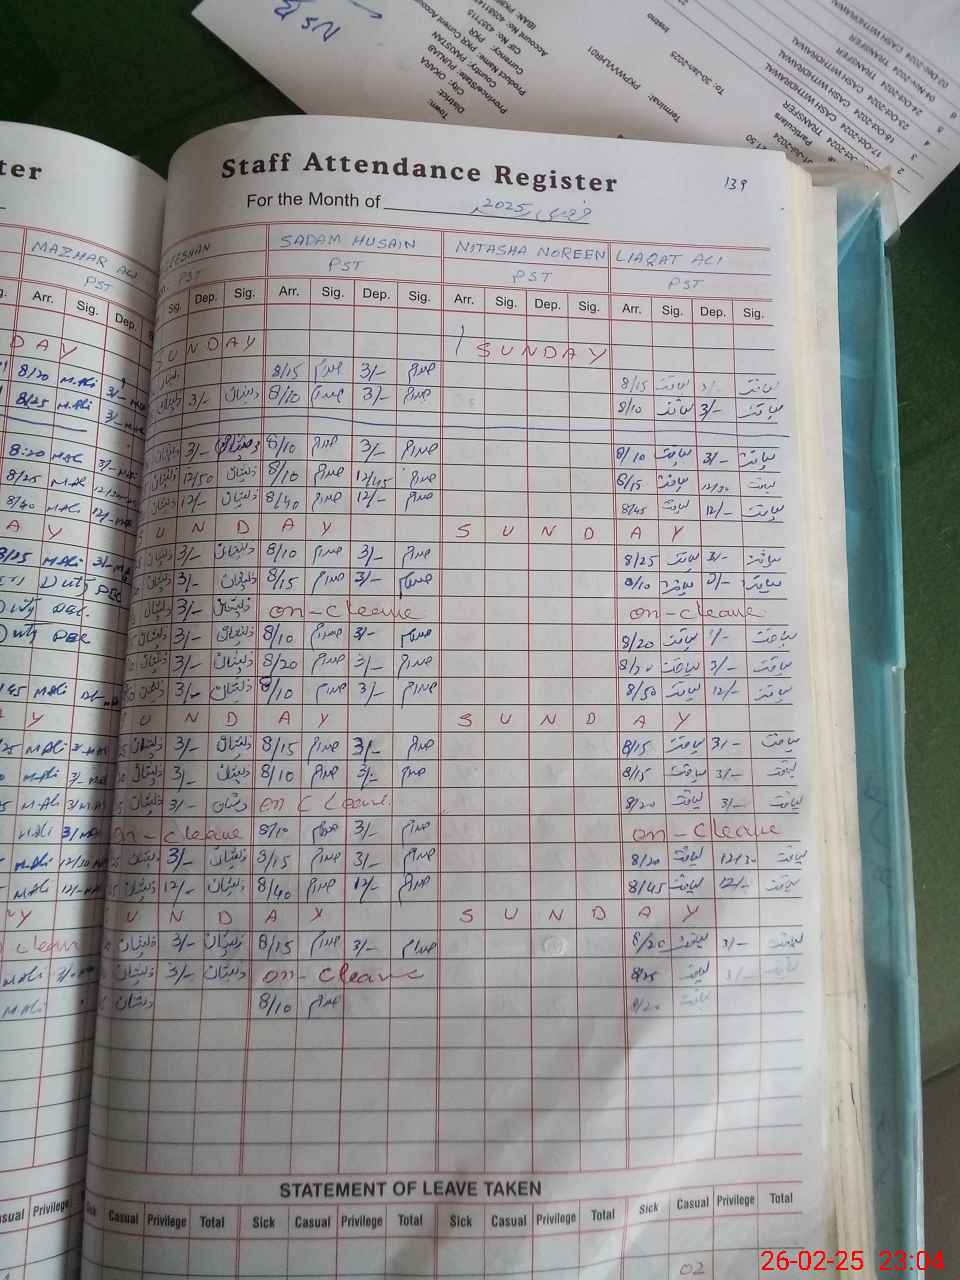 To: 30-Jan-2025
Terminal: PKPWVVLHR01
Account No:
CIF No: 4357115
Currency: PKR
Product Name: PKR Current Account
Country: PAKISTAN
Province/State: PUNJAB
City:
District: OKARA
Town:
Particulars
TRANSFER
17-Oct-2024 CASH WITHDRAWAL
18-Oct-2024 CASH WITHDRAWAL
23-Oct-2024 CASH WITHDRAWAL
24-Oct-2024 TRANSFER
04-Nov-2024 TRANSFER
02-Dec-2024 CASH WITHDRAWAL
Staff Attendance Register 139
For the Month of فروری 2025
MAZHAR ALI ZEESHAN SADAM HUSAIN NITASHA NOREEN LIAQAT ALI
PST PST PST PST PST
Arr. Sig. Dep. Sig. Dep. Sig. Arr. Sig. Dep. Sig. Arr. Sig. Dep. Sig. Arr. Sig. Dep. Sig.
DAY SUNDAY SUNDAY
8/20 M.Ali 3/- ذیشان 8/15 صدام 3/- صدام 8/15 لیاقت 3/- لیاقت
8/25 M.Ali 3/- ذیشان 3/- ذیشان 8/10 صدام 3/- صدام 8/10 لیاقت 3/- لیاقت
8:20 M.Ali 3/- ذیشان 3/- ذیشان 8/10 صدام 3/- صدام 8/10 لیاقت 3/- لیاقت
8/25 M.Ali ذیشان 12/50 ذیشان 8/10 صدام 12/45 صدام 8/15 لیاقت 12/30 لیاقت
8/40 M.Ali 12/- ذیشان 12/- ذیشان 8/40 صدام 12/- صدام 8/45 لیاقت 12/- لیاقت
A Y S U N D A Y S U N D A Y
8/25 M.Ali 3/- ذیشان 3/- ذیشان 8/10 صدام 3/- صدام 8/25 لیاقت 3/- لیاقت
Duty ذیشان 3/- ذیشان 8/15 صدام 3/- صدام 8/10 لیاقت 3/- لیاقت
Duty ذیشان 3/- ذیشان on-cleave on-cleave
Duty ذیشان 3/- ذیشان 8/10 صدام 3/- صدام 8/20 لیاقت لیاقت
ذیشان 3/- ذیشان 8/20 صدام 3/- صدام لیاقت 3/- لیاقت
M.Ali 12/- ذیشان 3/- ذیشان 8/10 صدام 3/- صدام 8/50 لیاقت 12/- لیاقت
A Y S U N D A Y S U N D A Y
M.Ali 3/- ذیشان 3/- ذیشان 8/15 صدام 3/- صدام 8/15 لیاقت 3/- لیاقت
M.Ali 3/- ذیشان 3/- ذیشان 8/10 صدام 3/- صدام 8/15 لیاقت 3/- لیاقت
M.Ali 3/- ذیشان 3/- ذیشان on cleave 8/20 لیاقت 3/- لیاقت
M.Ali 3/- on-cleave 8/10 صدام 3/- صدام on-cleave
M.Ali 12/30 ذیشان 3/- ذیشان 8/15 صدام 3/- صدام 8/20 لیاقت 12/30 لیاقت
M.Ali 12/- ذیشان 12/- ذیشان 8/40 صدام 12/- صدام 8/45 لیاقت 12/- لیاقت
A Y S U N D A Y S U N D A Y
cleave ذیشان 3/- ذیشان 8/15 صدام 3/- صدام 8/20 لیاقت 3/- لیاقت
M.Ali 3/- ذیشان 3/- ذیشان on-cleave 8/25 لیاقت 3/- لیاقت
M.Ali ذیشان 8/10 صدام 8/20 لیاقت
STATEMENT OF LEAVE TAKEN
Privilege Sick Casual Privilege Total Sick Casual Privilege Total Sick Casual Privilege Total Sick Casual Privilege Total
02
26-02-25 23:04